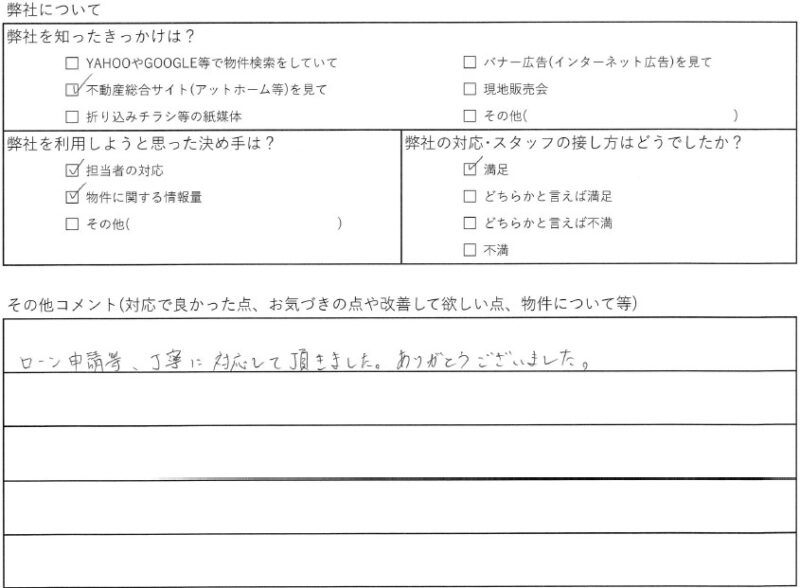 弊社について
弊社を知ったきっかけは？
□ YAHOOやGOOGLE等で物件検索をしていて
□ バナー広告(インターネット広告)を見て
☑ 不動産総合サイト(アットホーム等)を見て
□ 現地販売会
□ 折り込みチラシ等の紙媒体
□ その他( )
弊社を利用しようと思った決め手は？
☑ 担当者の対応
☑ 物件に関する情報量
□ その他( )
弊社の対応･スタッフの接し方はどうでしたか？
☑ 満足
□ どちらかと言えば満足
□ どちらかと言えば不満
□ 不満
その他コメント(対応で良かった点、お気づきの点や改善して欲しい点、物件について等)
ローン申請等、丁寧に対応して頂きました。ありがとうございました。